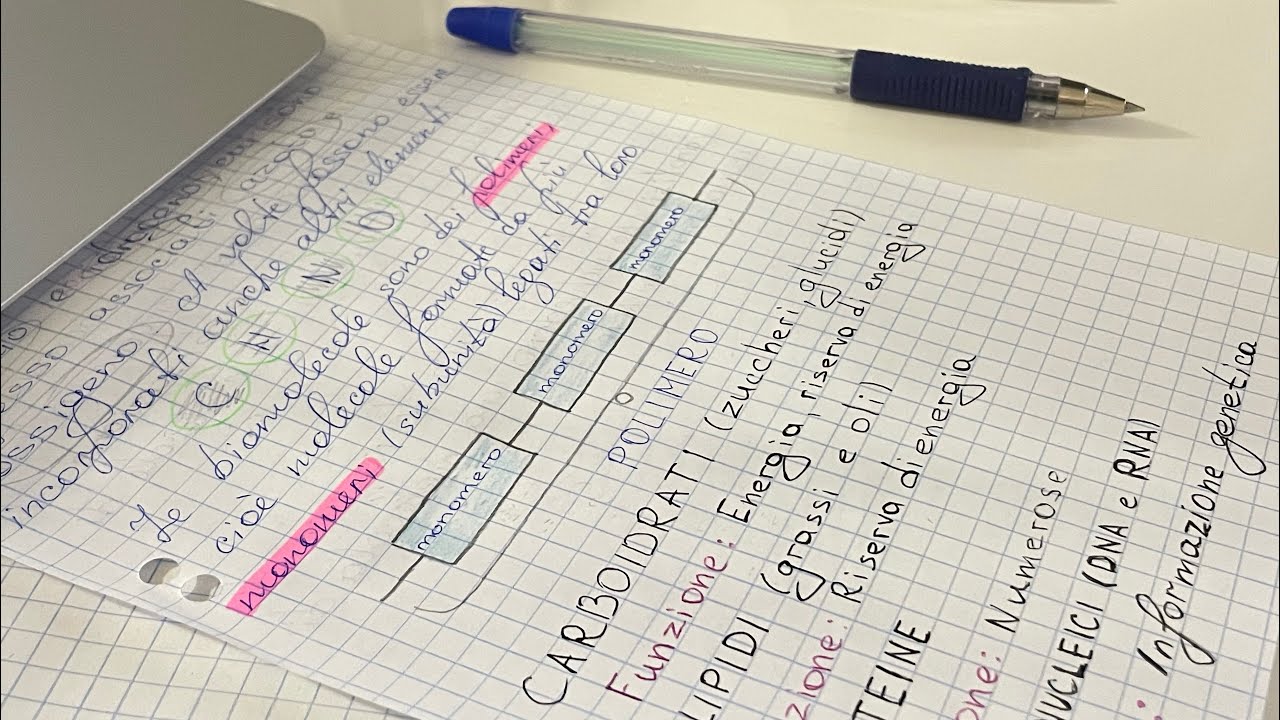 e idrogeno
esso associati azoto
ossigeno. A volte possono essere
incorporati anche altri elementi
C H N O
Le biomolecole sono dei polimeri,
cioè molecole formate da più
monomeri (subunità) legati tra loro
monomero monomero monomero
POLIMERO
CARBOIDRATI (zuccheri, glucidi)
Funzione: Energia, riserva di energia
LIPIDI (grassi e oli)
zione: Riserva di energia
TEINE
one: Numerose
NUCLEICI (DNA e RNA)
: Informazione genetica